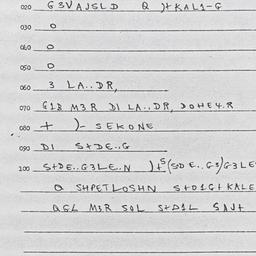 020 G3VAJSLD Q )+KAL1-G
030 O
040 O
050 O
060 3 LA..DR,
070 G1B M3R DI LA..DR, DOHE4.R
080 + )- SEKONE
090 DI S+DE..G
100 S+DE..G3LE..N )+S(SDE..G3/G3LE
Q SHPETLOSHN S+D1G+KALE
QGL M3R SQL S+D1L SAJ+